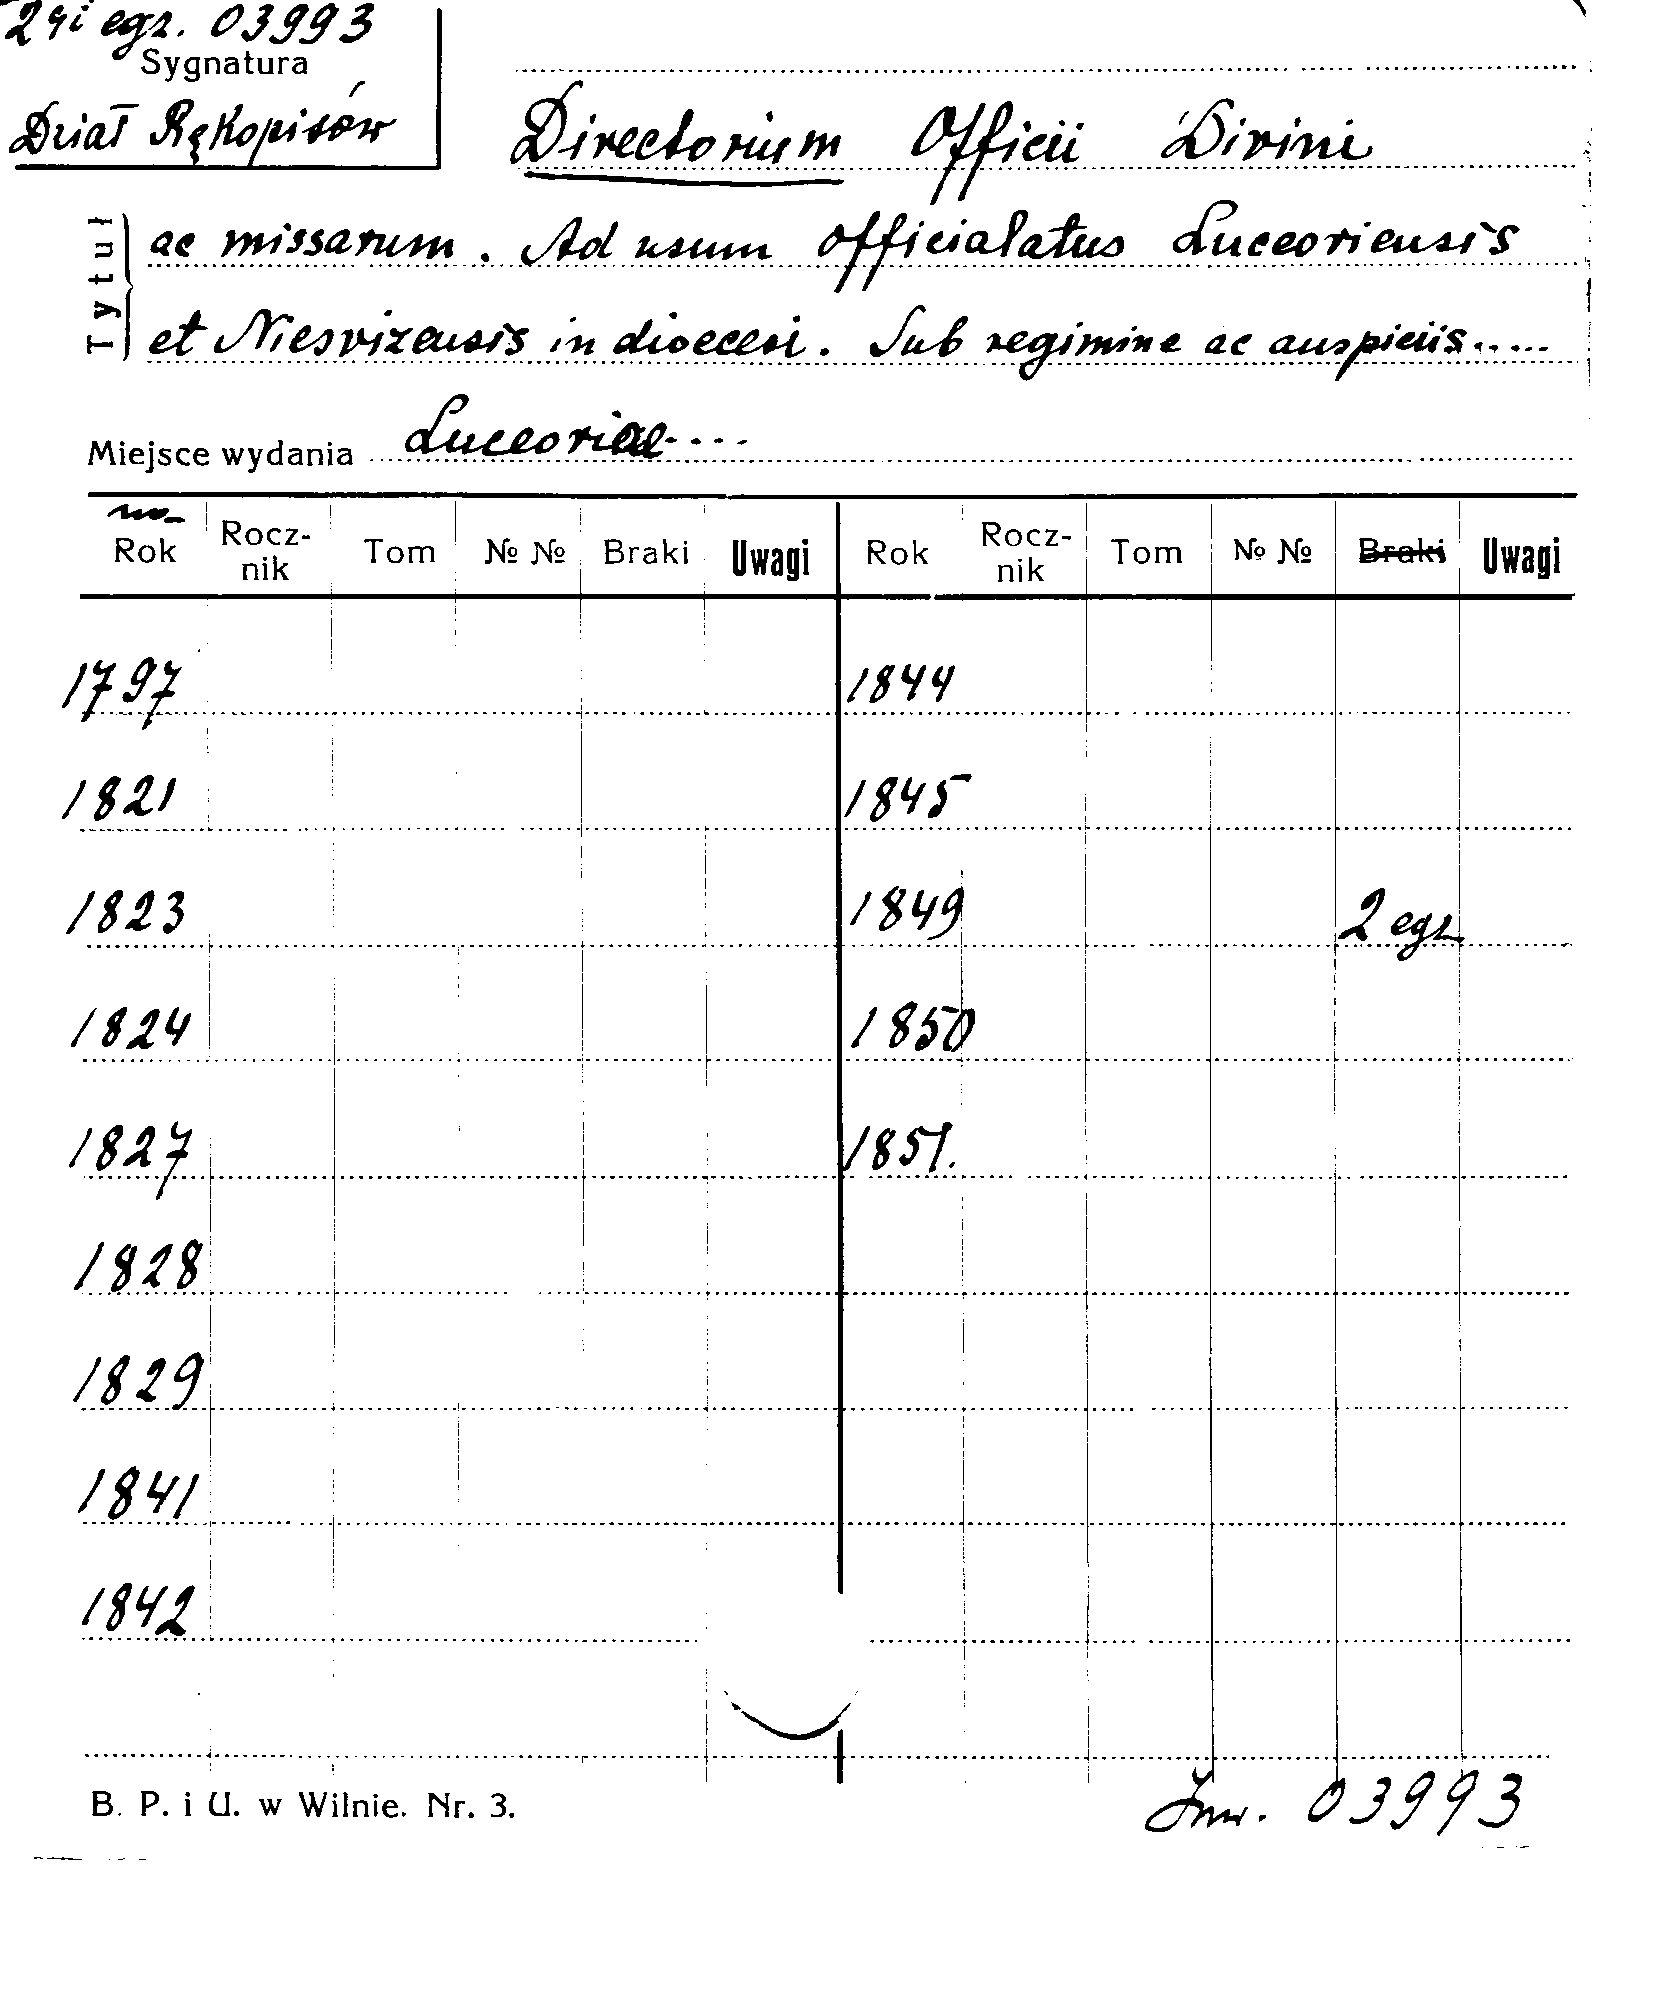 2gi egz. 03993
Sygnatura
Dział Rękopisów
Directorium Officii Divini
Tytuł
ac missarum. Ad usum officialatus Luceoriensis
et Niesvizensis in dioecesi. Sub regimine ac auspiciis.....
Miejsce wydania Luceoriae....
Rok Rocz-nik Tom № № Braki Uwagi Rok Rocz-nik Tom № № Braki Uwagi
1797 1844
1821 1845
1823 1849 2 egz.
1824 1850
1827 1851.
1828
1829
1841
1842
B. P. i U. w Wilnie. Nr. 3.
Inw. 03993